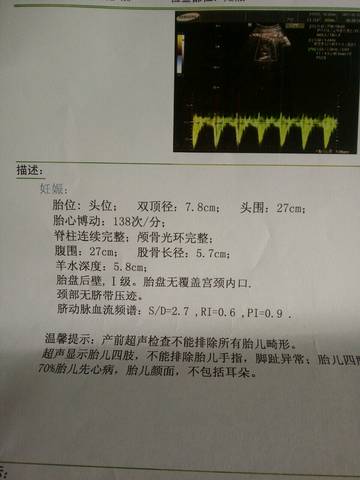 SAMSUNG
描述：
妊娠：
胎位：头位； 双顶径：7.8cm； 头围：27cm；
胎心博动：138次/分；
脊柱连续完整；颅骨光环完整；
腹围：27cm； 股骨长径：5.7cm；
羊水深度：5.8cm；
胎盘后壁，I 级。胎盘无覆盖宫颈内口.
颈部无脐带压迹。
脐动脉血流频谱：S/D=2.7 ,RI=0.6 ,PI=0.9 .
温馨提示：产前超声检查不能排除所有胎儿畸形。
超声显示胎儿四肢，不能排除胎儿手指，脚趾异常；胎儿四肢
70%胎儿先心病，胎儿颜面，不包括耳朵。